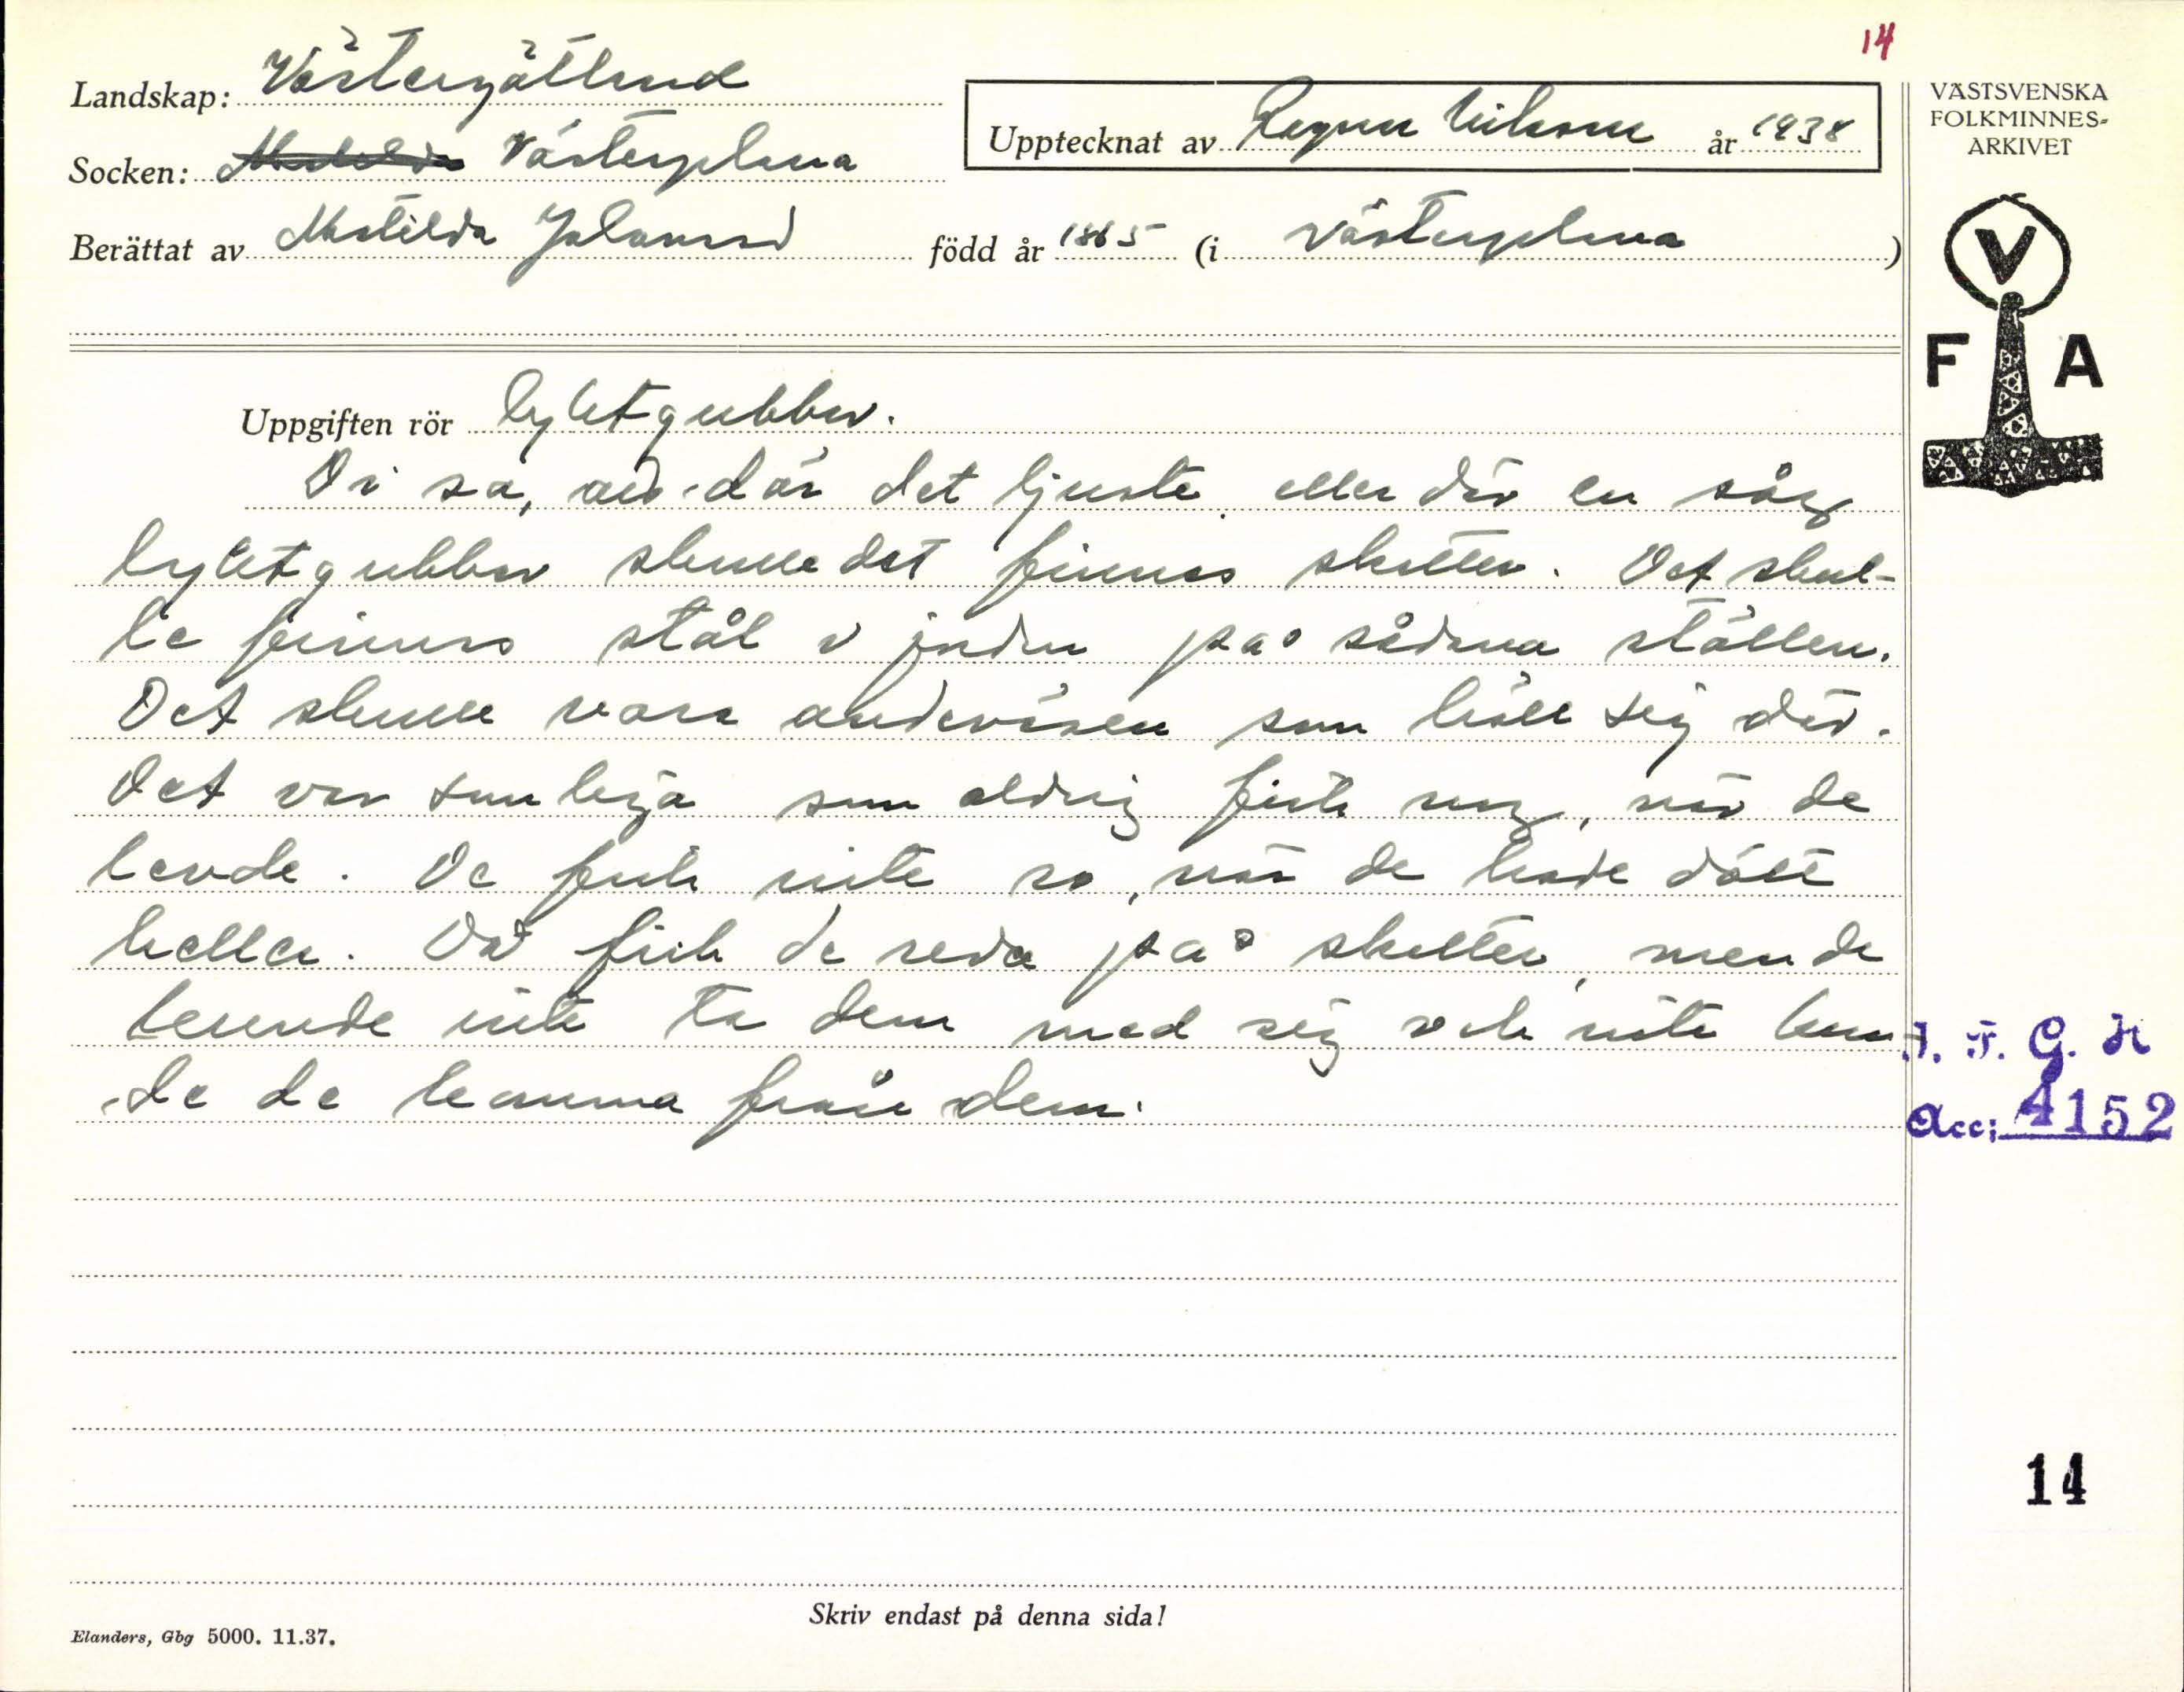 14
Landskap: Västergötland
Upptecknat av Ragnar Nilsson år 1938
VÄSTSVENSKA
FOLKMINNES-
ARKIVET
Socken: Matilda Västerplana
Berättat av Matilda Johansson född år 1865 (i Västerplana)
V
F A
Uppgiften rör lyktgubbar.
Di sa, att där det ljuste eller där en såg
lyktgubbar skulle det finnas skatter. Det skul-
le finnas stål i jorden på sådana ställen.
Det skulle vara andeväsen som höll sig där.
Det var somliga som aldrig fick nog, när de
levde. De fick inte ro, när de hade dött
heller. Då fick de reda på skatter, men de
kunde inte ta dem med sig och inte kun
de de komma från dem.
I. F. G. H
Acc: 4152
14
Skriv endast på denna sida!
Elanders, Gbg 5000. 11.37.